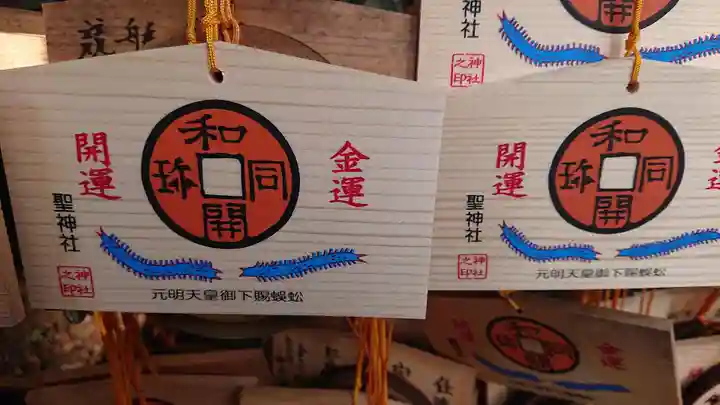 開運
和同開珎
金運
聖神社
神社之印
元明天皇御下賜蜈蚣
神社之印
開運
和同開珎
聖神社
神社之印
元明天皇御下賜蜈蚣
開運
金運